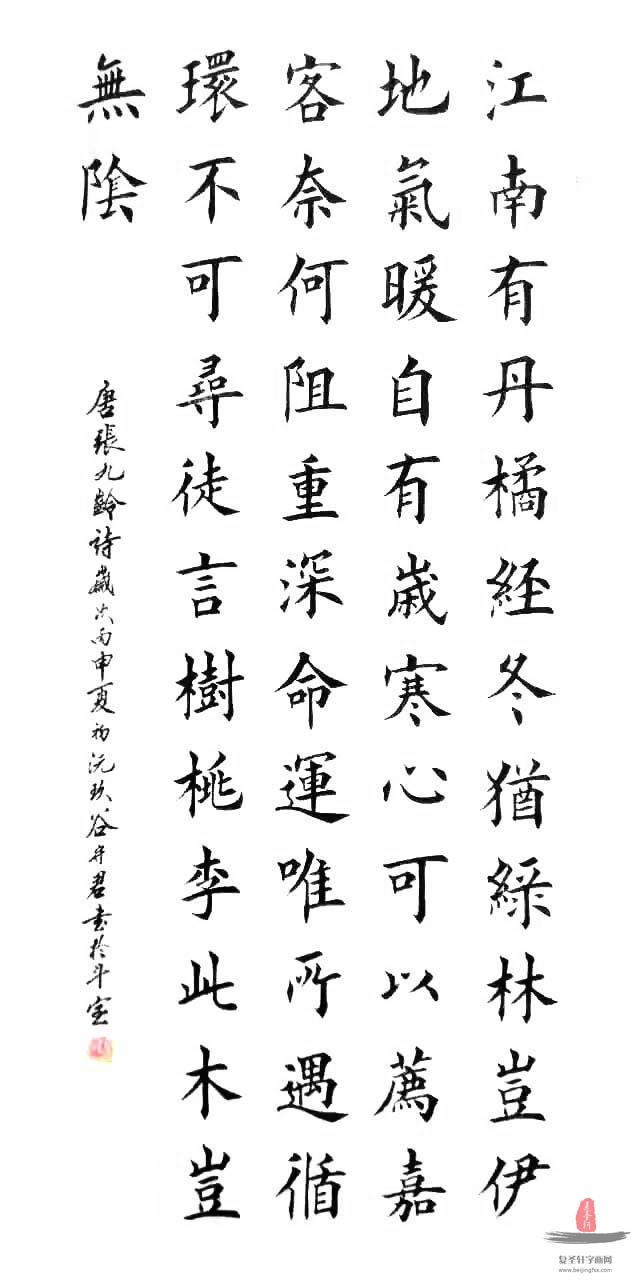 江南有丹橘経冬猶緑林豈伊
地氣暖自有歳寒心可以薦嘉
客奈何阻重深命運唯所遇循
環不可尋徒言樹桃李此木豈
無陰
唐張九齡詩歲次丙申夏初沅玖谷丹君书於斗室
复圣轩字画网
www.beijingfsx.com